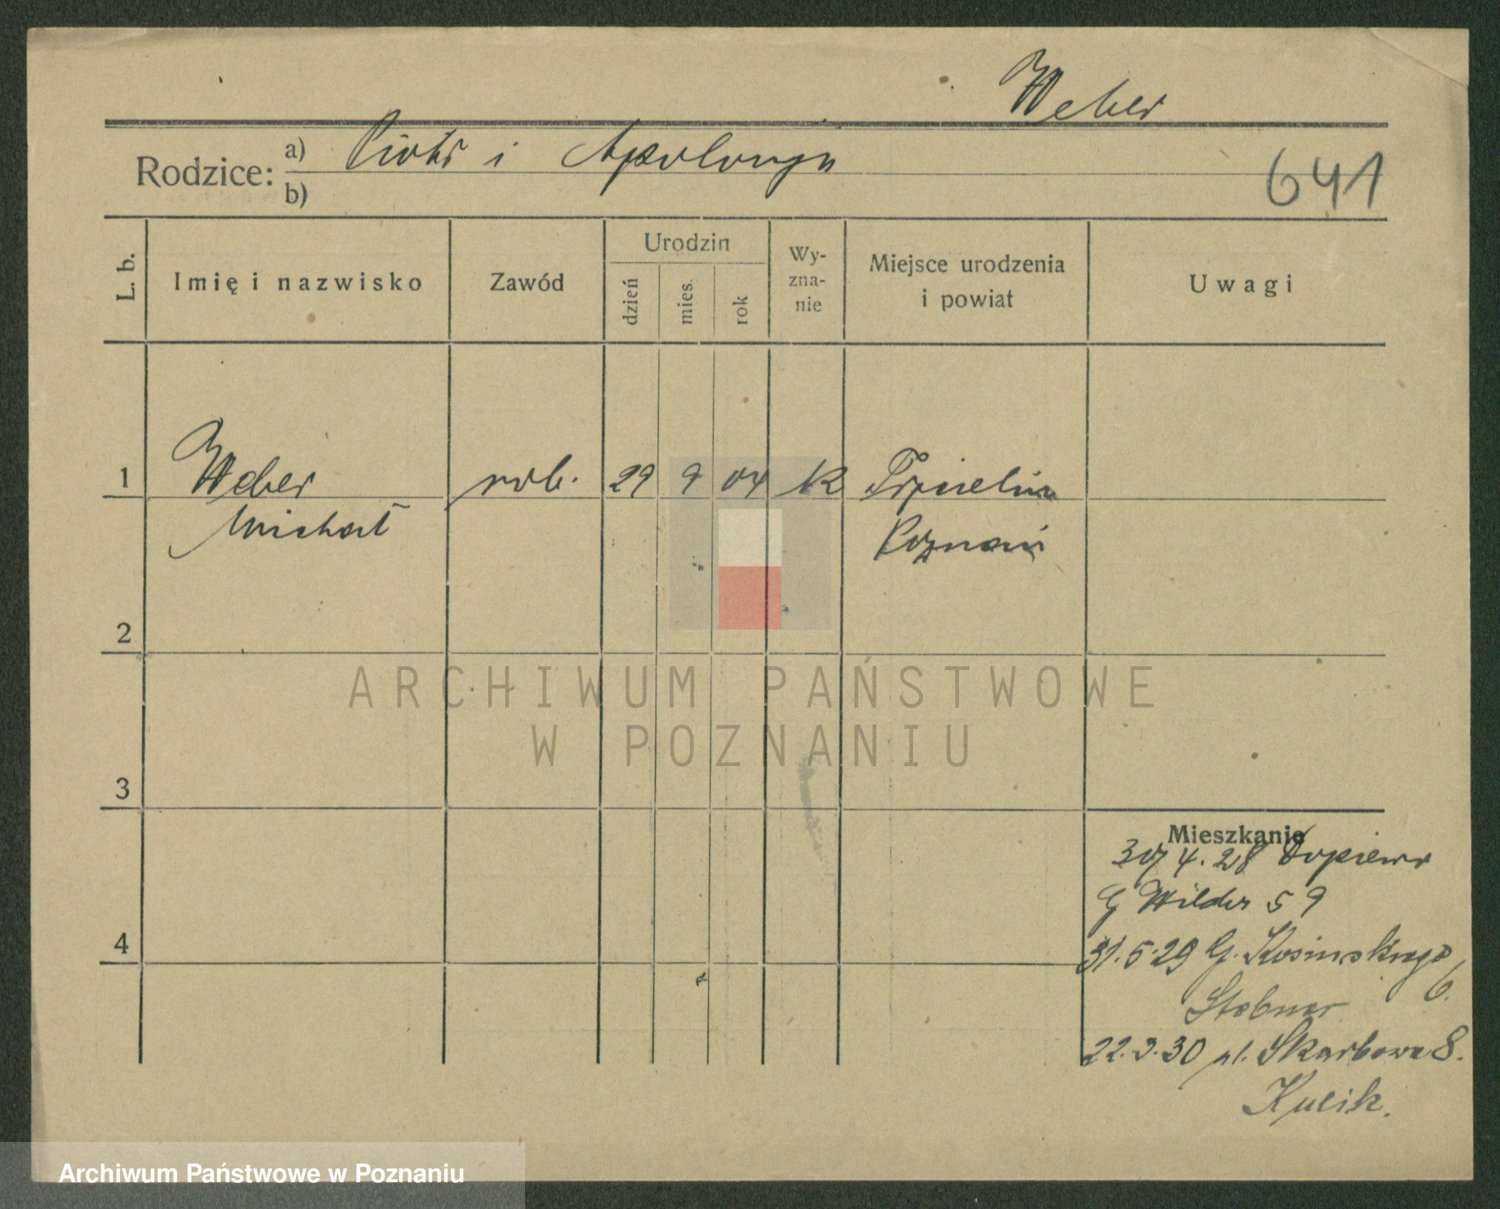 Weber
Rodzice: a) Piotr i Apolonja
b)
641
L. b.
Imię i nazwisko
Zawód
Urodzin
dzień
mies.
rok
Wy-
zna-
nie
Miejsce urodzenia
i powiat
Uwagi
1 Weber rob. 29 9 04 K
Michał Poznań
2
3
4
ARCHIWUM PAŃSTWOWE
W POZNANIU
Mieszkanie
4. 28 Dopiewo
G Wilda 59
31.5.29 G. Kosinskiego
6.
22.3.30 pl. Skarbowa 8.
Kulik.
Archiwum Państwowe w Poznaniu